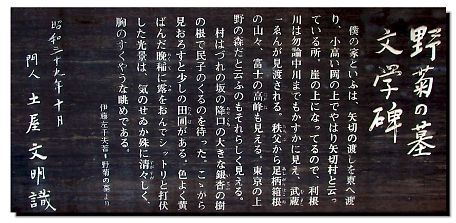 野菊の墓
文学碑
僕の家といふは、矢切の渡しを東へ渡
り、小高い岡の上でやはり矢切村と云っ
てゐる所。崖の上になってるので、利根
川は勿論中川までもかすかに見え、武蔵
一ゑんが見渡される。秩父から足柄箱根
の山々、富士の高峰も見える。東京の上
野の森だと云ふのもそれらしく見える。
村はづれの坂の降口の大きな銀杏の樹
の根で民子のくるのを待った。こゝから
見おろすと少しの田圃がある。色よく黄
ばんだ晩稲に露をおんでシットリと打伏
した光景は、気のせゐか殊に清々しく、
胸のすくやうな眺めである。
伊藤左千夫著－野菊の墓より
昭和三十九年十月
門人 土屋文明識